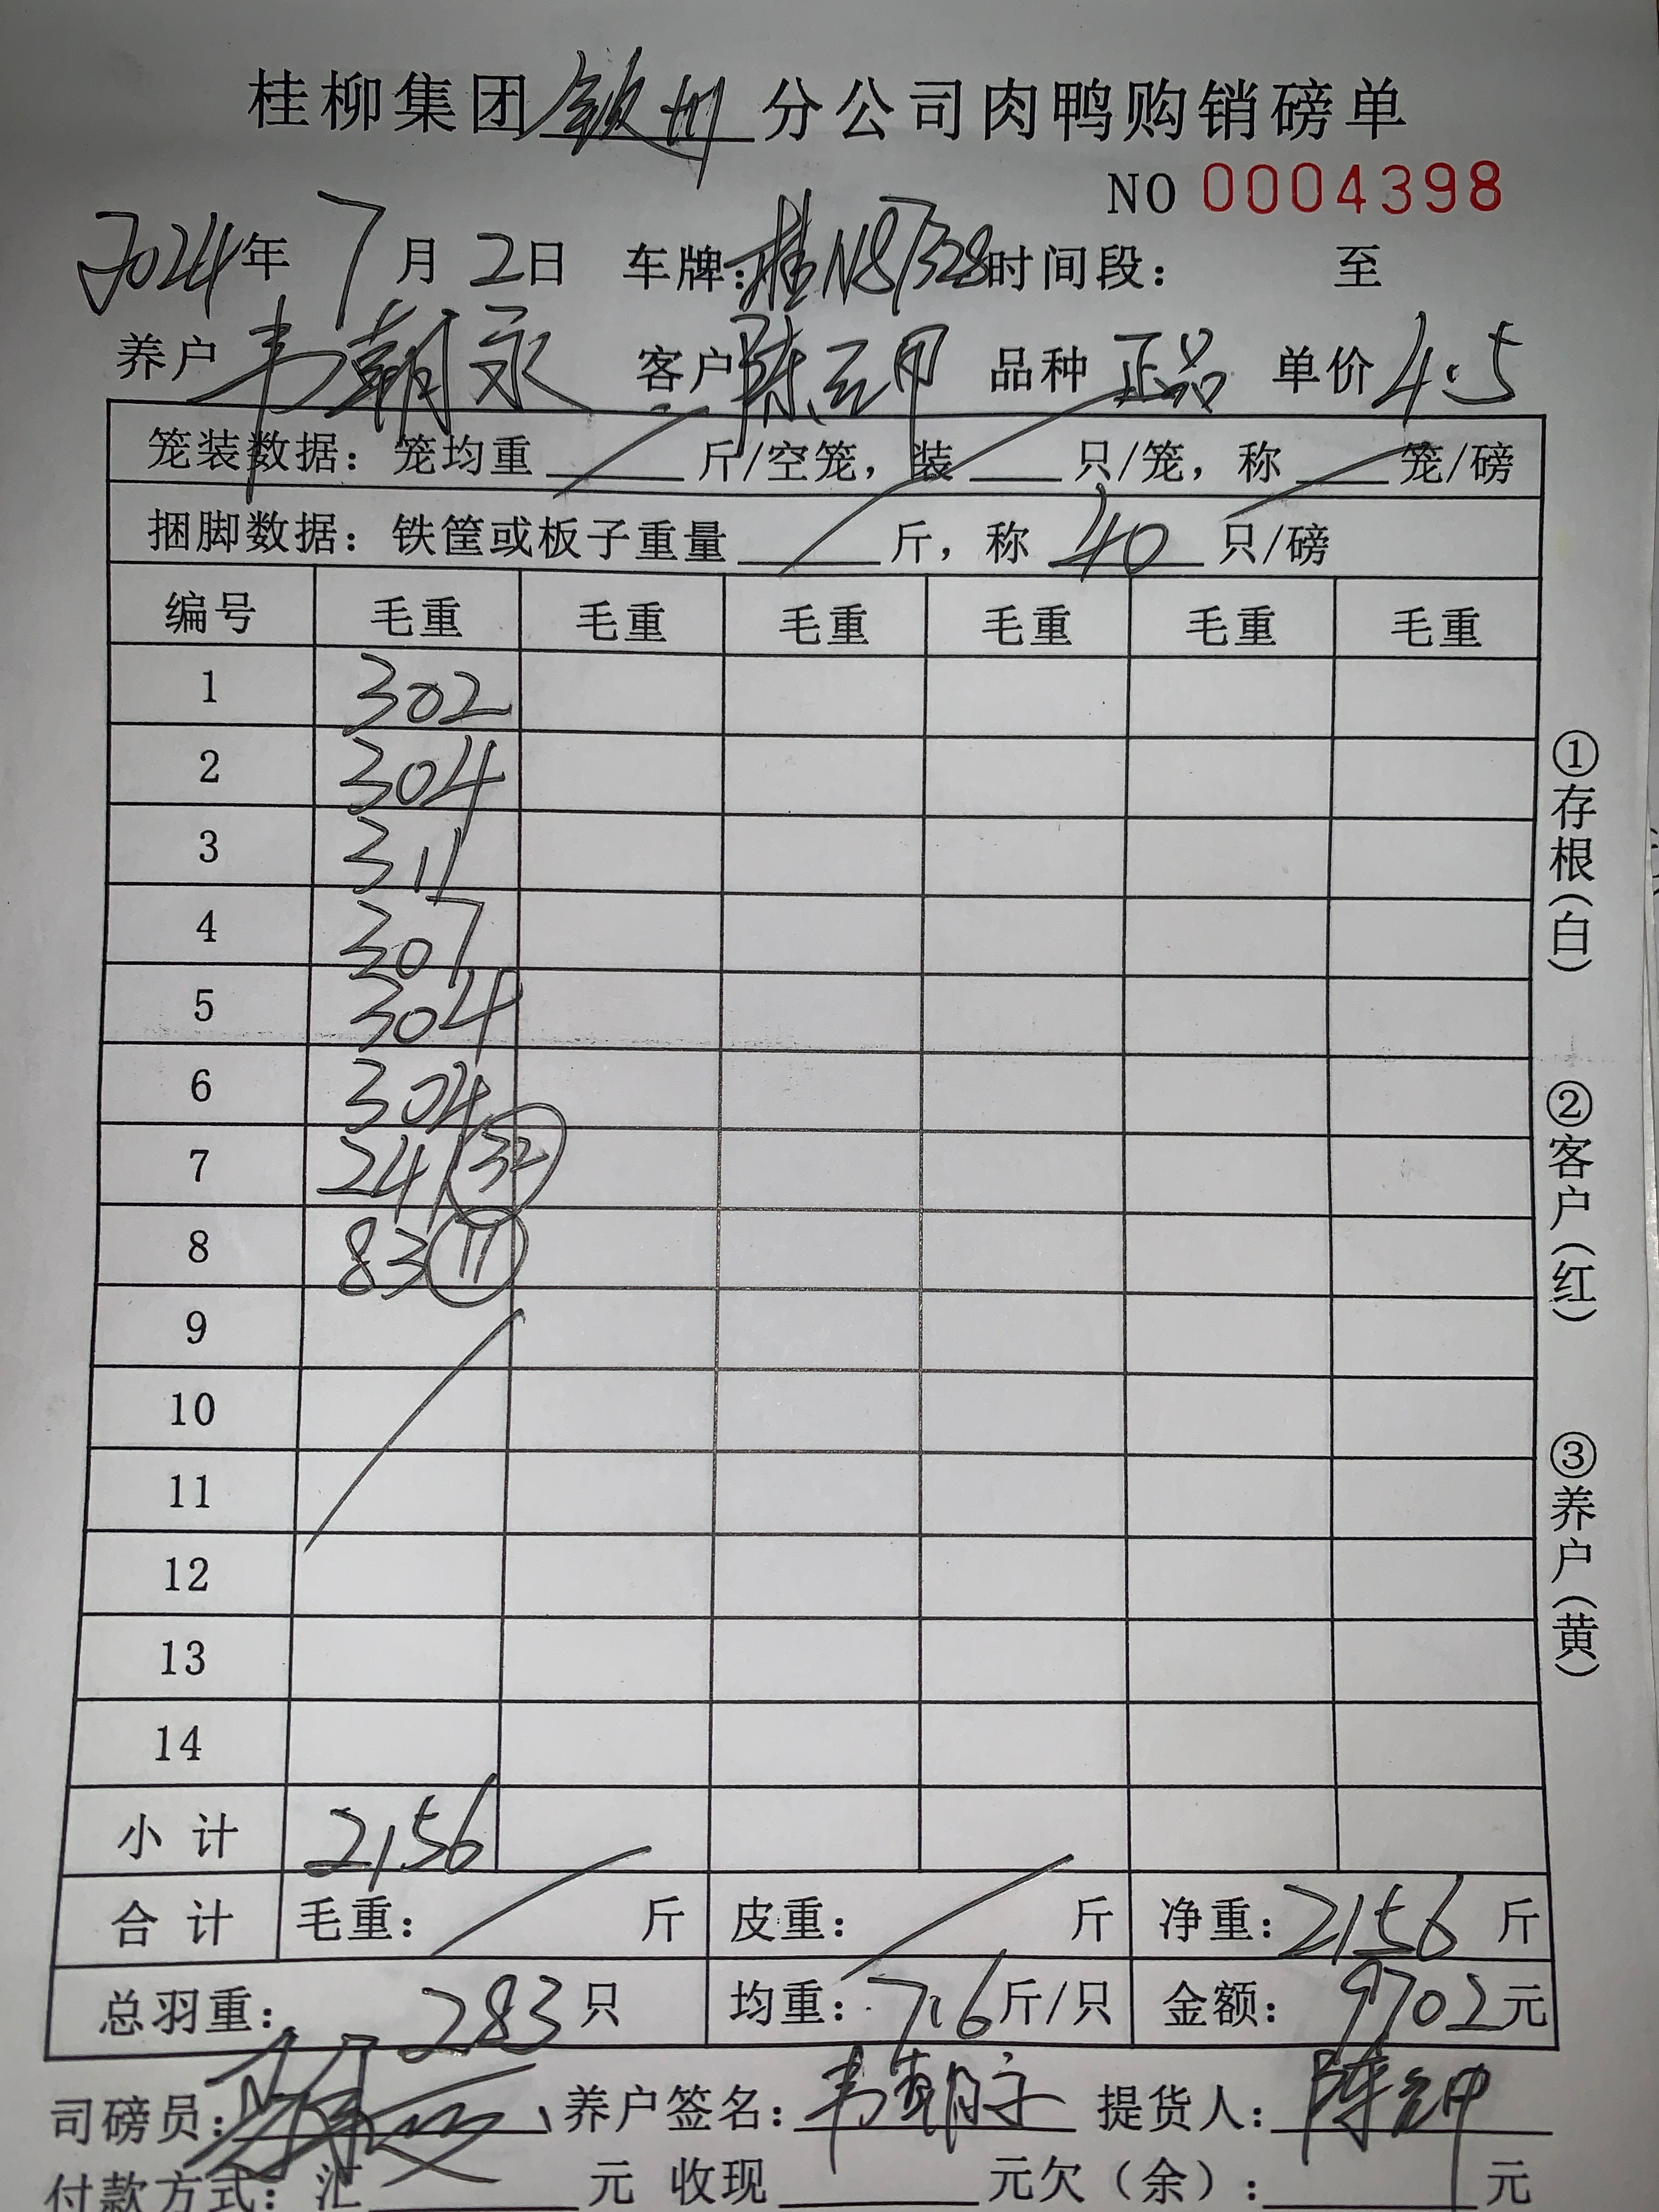 桂柳集团钦州分公司肉鸭购销磅单
NO 0004398
2024年 7月 2日 车牌：桂N87328 时间段： 至
养户 韦朝永 客户 陈云甲 品种 正品 单价 4.5
笼装数据：笼均重 / 斤/空笼，装 / 只/笼，称 / 笼/磅
捆脚数据：铁筐或板子重量 / 斤，称 40 只/磅
编号 毛重 毛重 毛重 毛重 毛重 毛重
1 302
2 304
3 311
4 307
5 304
6 304
7 241 32
8 83 11
9
10
11
12
13
14
小计 2156
合计 毛重： / 斤 皮重： / 斤 净重：2156 斤
总羽重： 283 只 均重：7.6 斤/只 金额：9702 元
司磅员： 养户签名：韦朝永 提货人：陈云甲
付款方式：汇 元 收现 元欠（余）： 元
①存根（白）
②客户（红）
③养户（黄）